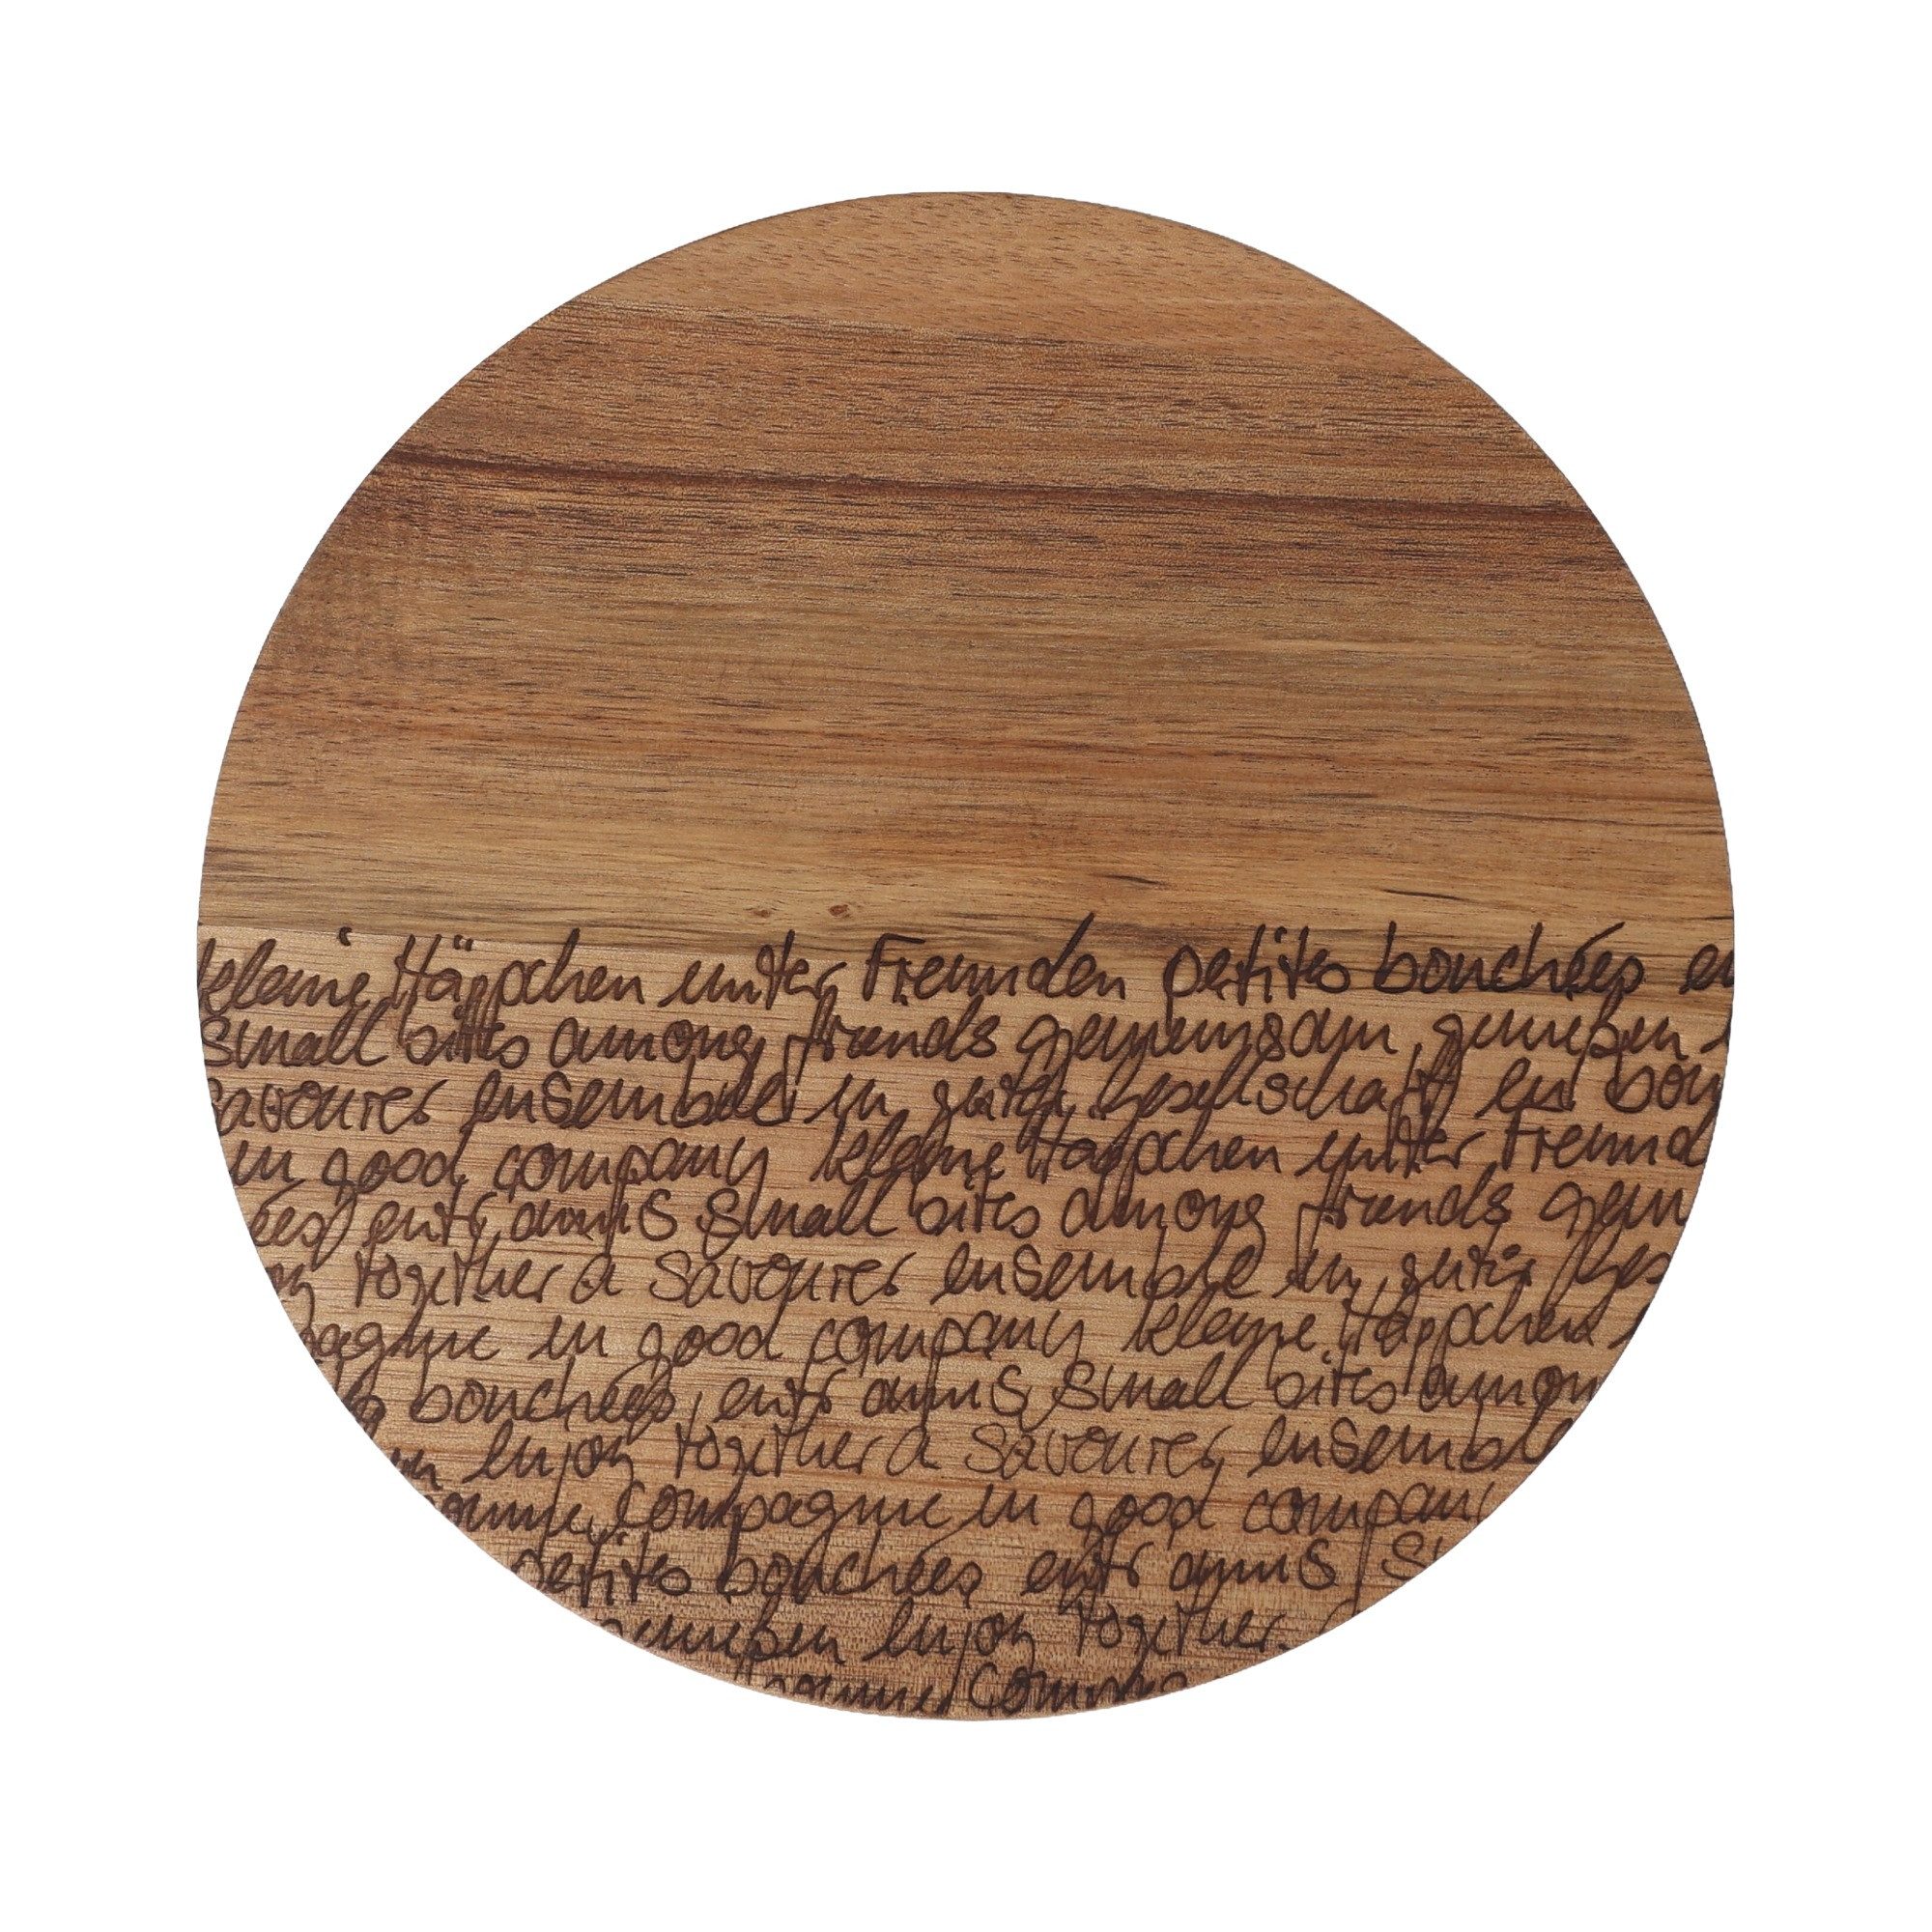 kleine Häppchen unter Freunden petits bouchées en
small bites among friends gemeinsam genießen
savourer ensemble in guter Gesellschaft en bon
in good company kleine Häppchen unter Freund
ées entr amis small bites among friends gem
together à savourer ensemble in guter Ges
pagnie in good company kleine Häppchen
bouchées entr amis small bites amon
enjoy together à savourer ensembl
onne compagnie in good compan
petits bouchées entr amis s
genießen enjoy together
bonne comp